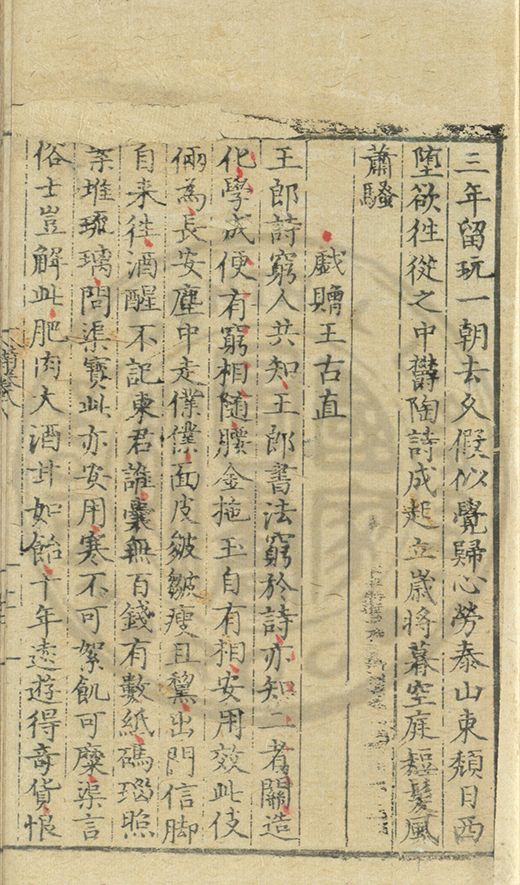 三年留玩一朝去久假似覺歸心勞泰山東頹日西
墮欲徃從之中欝陶詩成起立歲將暮空庭短髮風
蕭騷
戱贈王古直
王郎詩窮人共知王郎書法窮於詩亦知二者關造
化學成便有窮相随腰金拖玉自有相安用效此伎
倆為長安塵中走僕僕面皮皺皺瘦且黧出門信脚
自来徃酒醒不記東君誰囊無百錢有數紙碼瑙照
堆琉璃問渠寶此亦安用寒不可絮飢可糜渠言
俗士豈解此肥肉大酒甘如飴十年遠遊得竒貨恨